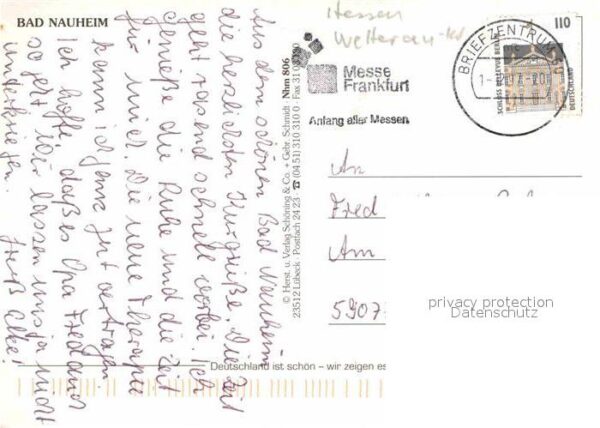 BAD NAUHEIM
Hessen
Wetterau-
110
BRIEFZENTRUM
SCHLOSS BELLEVUE BERLIN
DEUTSCHLAND
Messe
Frankfurt
Anfang aller Messen
Aus dem schönen Bad Nauheim
die herzlichsten Kurgrüße. Die Zeit
geht rasend schnell vorbei. Ich
genieße die Ruhe und die Zeit
für mich. Die neue Therapie
kann ich ganz gut vertragen.
Ich hoffe, daß es Opa Fred
so geht. Wir lassen uns ja nicht
unterkriegen.
© Herst. u. Verlag Schöning & Co. + Gebr. Schmidt
Nhm 806
23512 Lübeck · Postfach 24 23 · ☎ (04 51) 310 310 0 · Fax 31 03
An
Fred
Am
5907
privacy protection
Datenschutz
Deutschland ist schön – wir zeigen es